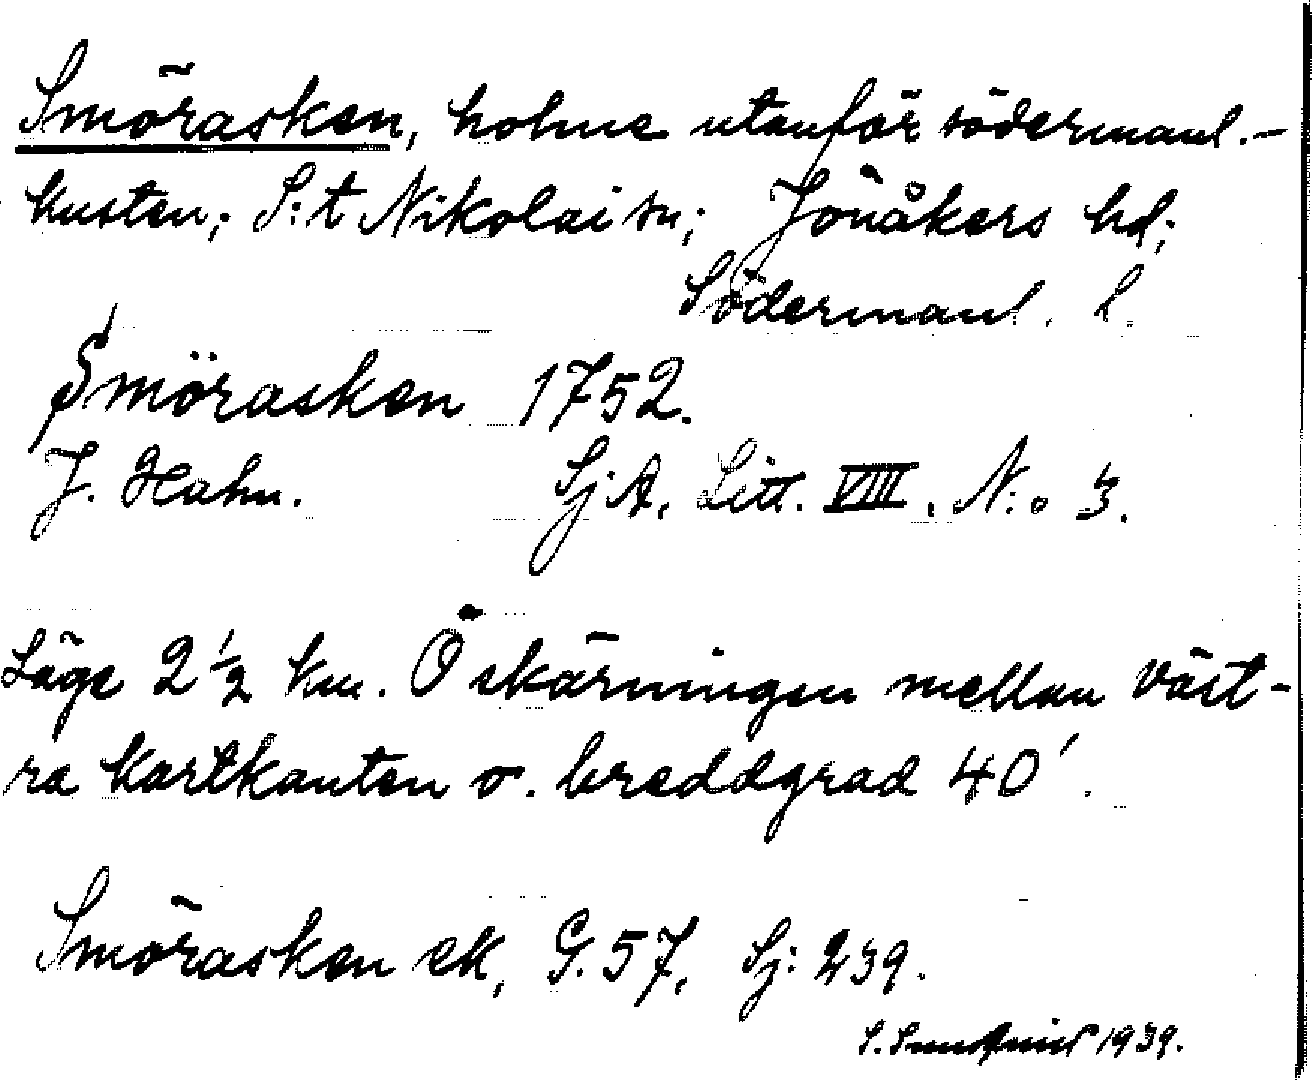 Smörasken, holme utanför södermanl.-
kusten; S:t Nikolai sn; Jönåkers hd;
Södermanl. l.
Smörasken 1752.
J. Hahn. SjA. Litt. VIII. N:o 3.
Läge 2 1/2 km. Ö skärningen mellan väst-
ra kartkanten o. breddgrad 40'.
Smörasken ek, G. 57, Sj: 239.
S. Sundqvist 1939.